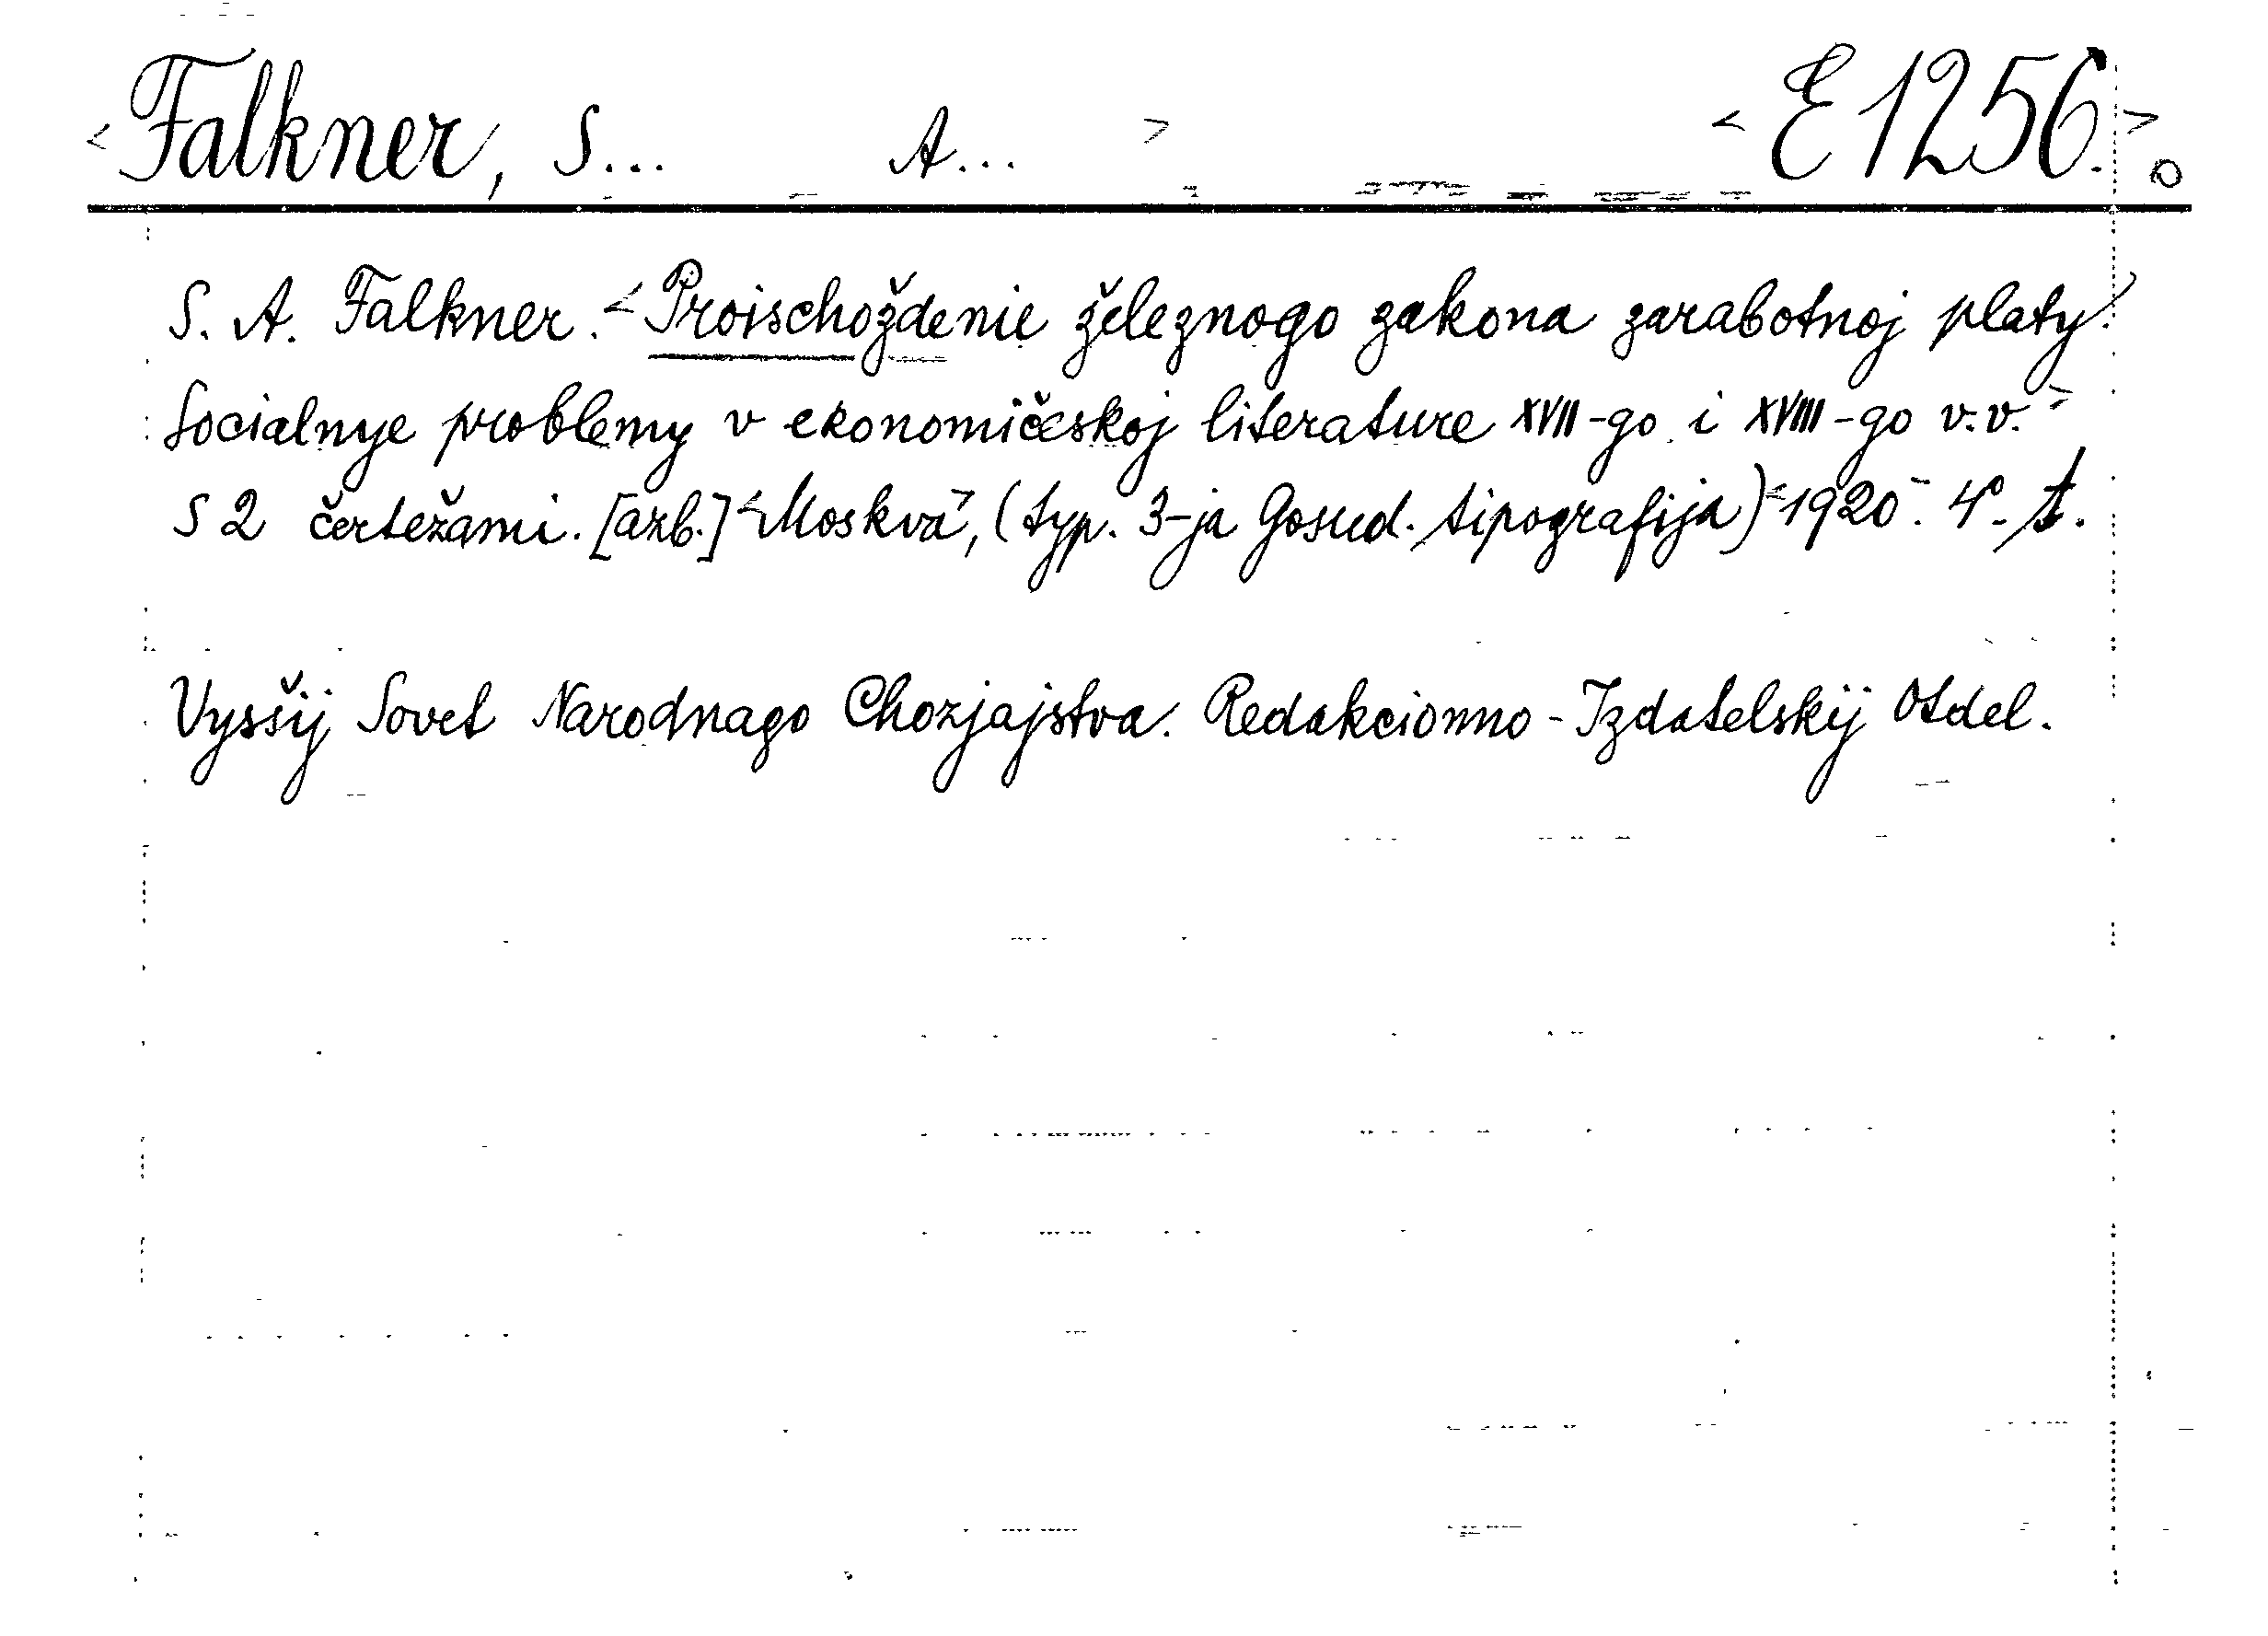 <Falkner, S... A...> <E 1256.>
S. A. Falkner. <Proischoždenie železnogo zakona zarabotnoj platy.
Socialnye problemy v ekonomičeskoj literature XVII-go i XVIII-go v.v.>
S 2 čertežami. [azb.] <Moskva>, (typ. 3-ja Gosud. tipografija) <1920>. 4°. t.
Vysšij Sovet Narodnago Chozjajstva. Redakcionno-Izdatelskij Otdel.